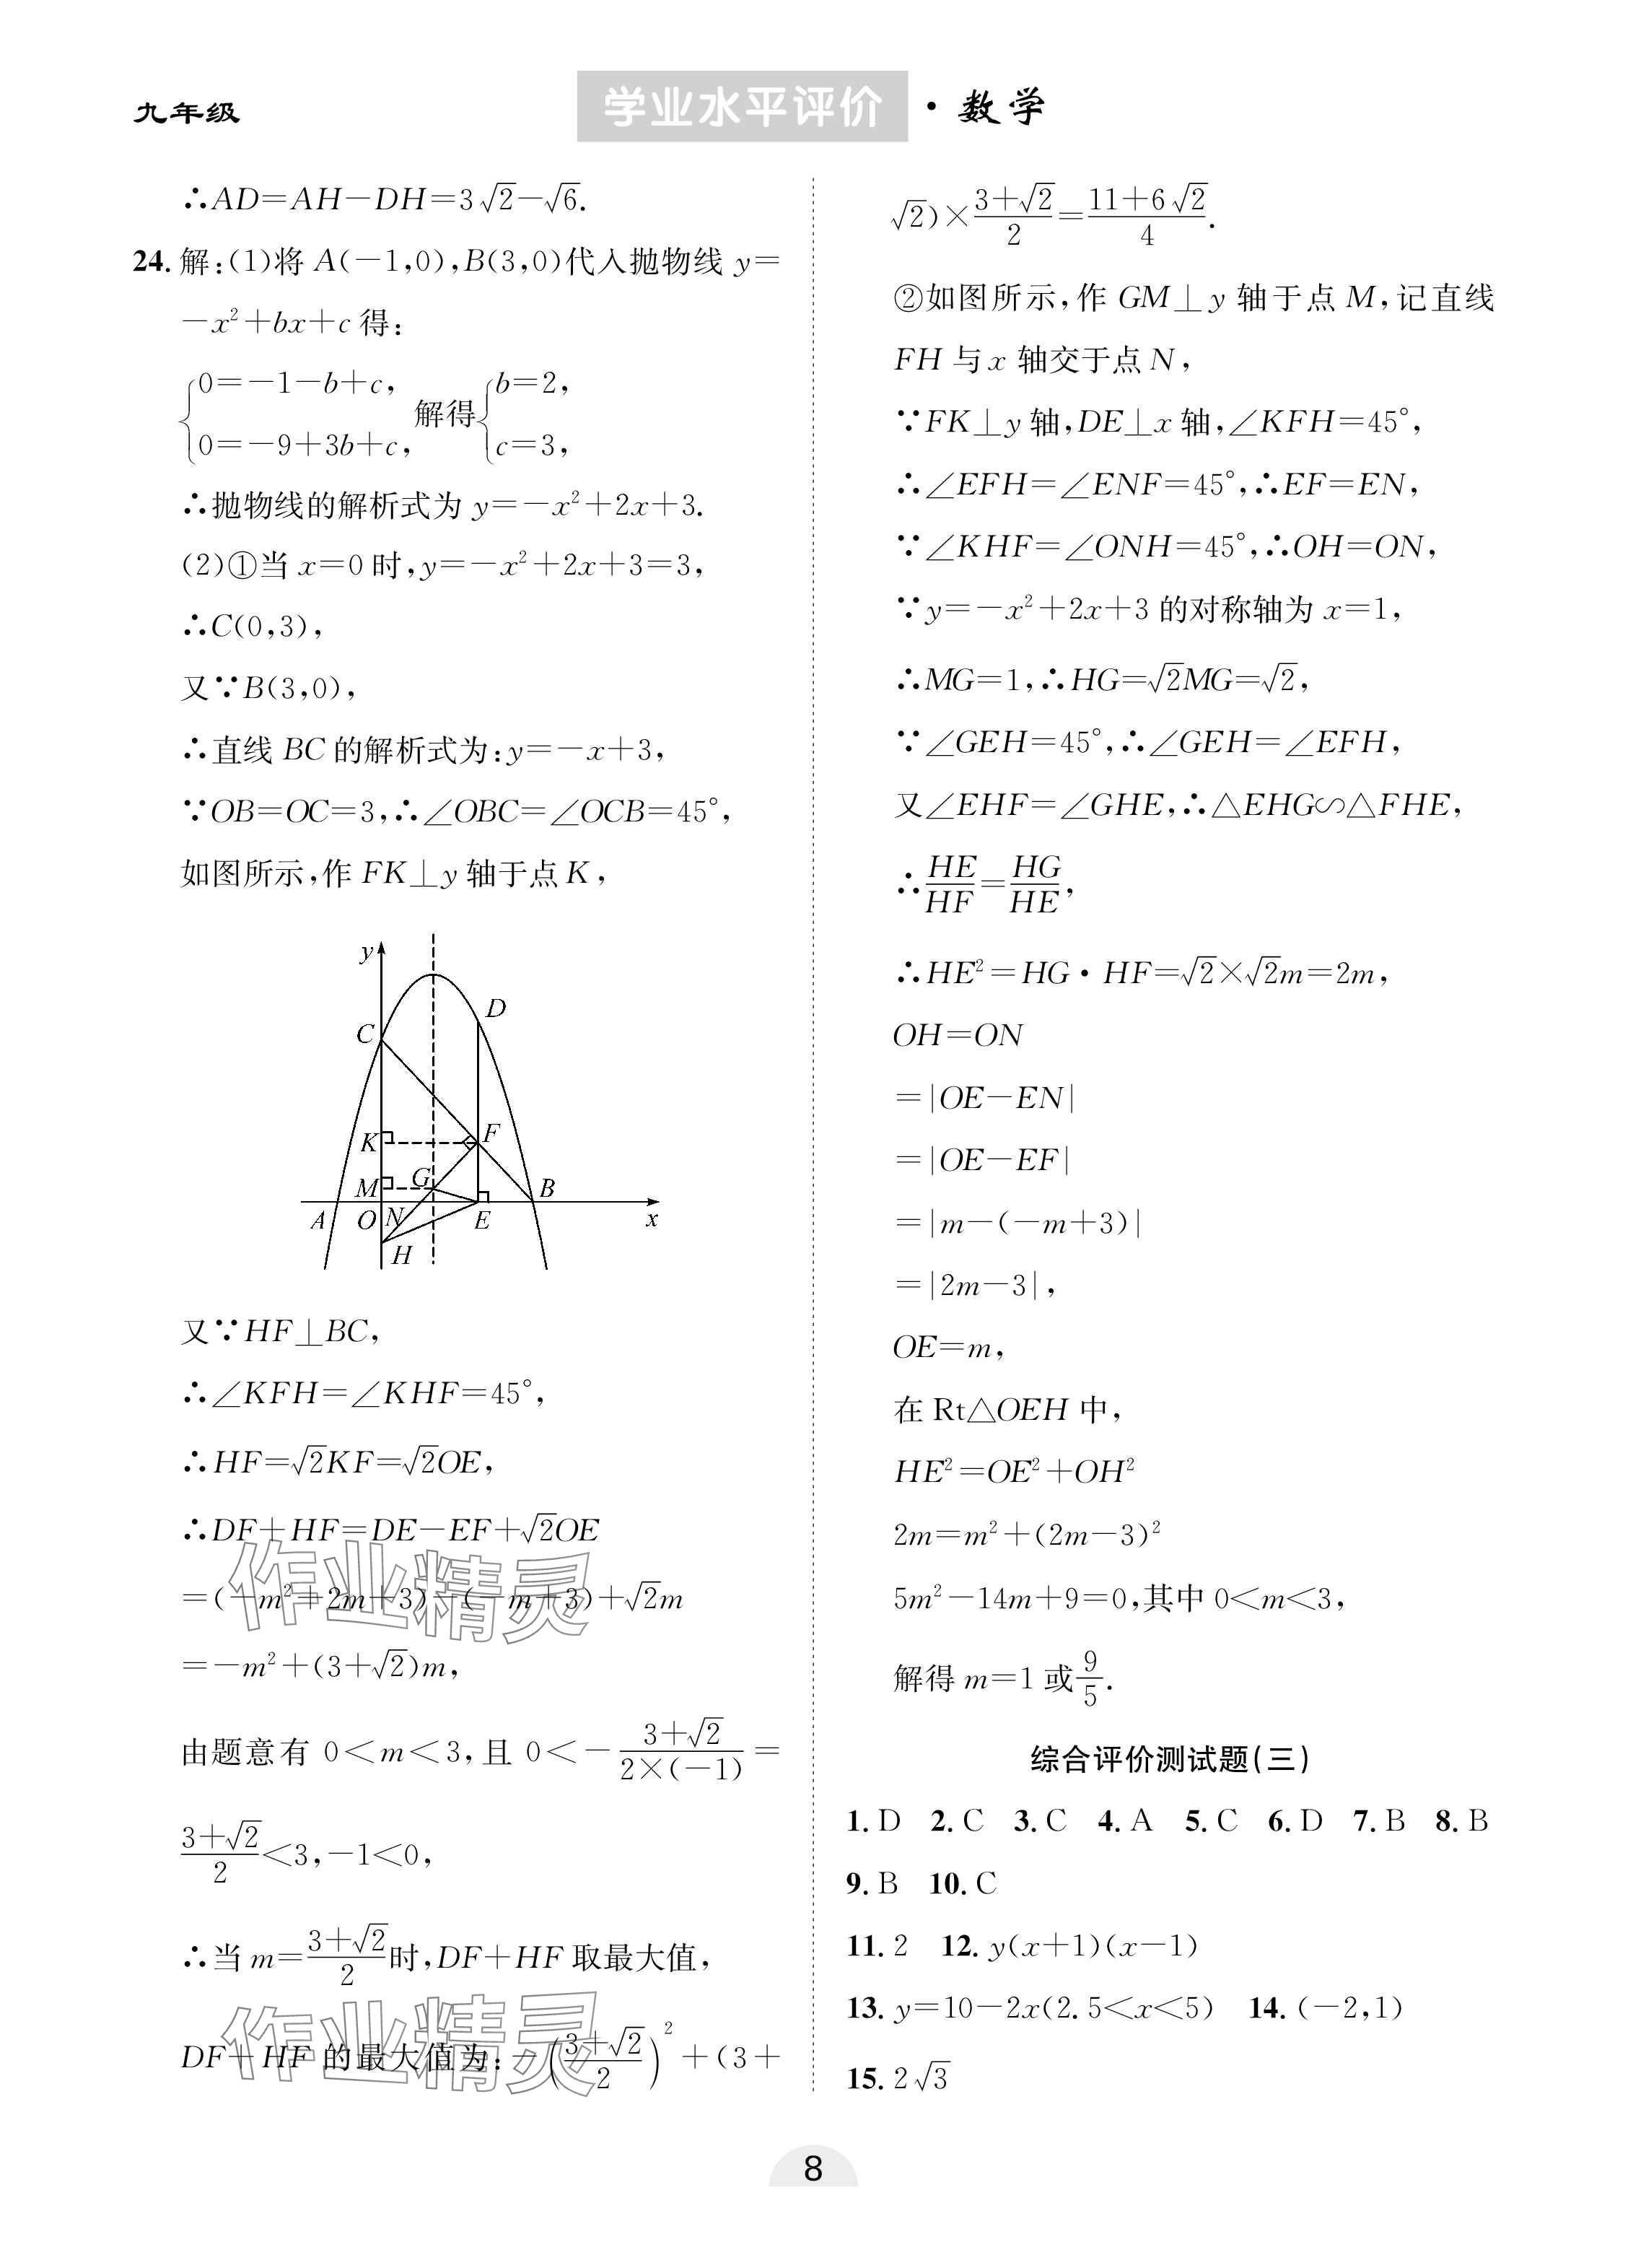 九年级
学业水平评价·数学
∴AD=AH-DH=3√2-√6.
24. 解:(1)将 A(-1,0),B(3,0)代入抛物线 y=
-x²+bx+c 得:
{0=-1-b+c, 0=-9+3b+c, 解得{b=2, c=3,
∴抛物线的解析式为 y=-x²+2x+3.
(2)①当 x=0 时,y=-x²+2x+3=3,
∴C(0,3),
又∵B(3,0),
∴直线 BC 的解析式为:y=-x+3,
∵OB=OC=3,∴∠OBC=∠OCB=45°,
如图所示,作 FK⊥y 轴于点 K,
y
D
C
K
F
M
G
B
A
O
N
E
x
H
又∵HF⊥BC,
∴∠KFH=∠KHF=45°,
∴HF=√2KF=√2OE,
∴DF+HF=DE-EF+√2OE
=(-m²+2m+3)-(-m+3)+√2m
=-m²+(3+√2)m,
由题意有 0<m<3,且 0<-(3+√2)/(2×(-1))=
(3+√2)/2<3,-1<0,
∴当 m=(3+√2)/2时,DF+HF 取最大值,
DF+HF 的最大值为:-((3+√2)/2)²+(3+
√2)×(3+√2)/2=(11+6√2)/4.
②如图所示,作 GM⊥y 轴于点 M,记直线
FH 与 x 轴交于点 N,
∵FK⊥y 轴,DE⊥x 轴,∠KFH=45°,
∴∠EFH=∠ENF=45°,∴EF=EN,
∵∠KHF=∠ONH=45°,∴OH=ON,
∵y=-x²+2x+3 的对称轴为 x=1,
∴MG=1,∴HG=√2MG=√2,
∵∠GEH=45°,∴∠GEH=∠EFH,
又∠EHF=∠GHE,∴△EHG∽△FHE,
∴HE/HF=HG/HE,
∴HE²=HG·HF=√2×√2m=2m,
OH=ON
=|OE-EN|
=|OE-EF|
=|m-(-m+3)|
=|2m-3|,
OE=m,
在 Rt△OEH 中,
HE²=OE²+OH²
2m=m²+(2m-3)²
5m²-14m+9=0,其中 0<m<3,
解得 m=1 或9/5.
综合评价测试题(三)
1. D 2. C 3. C 4. A 5. C 6. D 7. B 8. B
9. B 10. C
11. 2 12. y(x+1)(x-1)
13. y=10-2x(2.5<x<5) 14. (-2,1)
15. 2√3
作业精灵
作业精灵
8